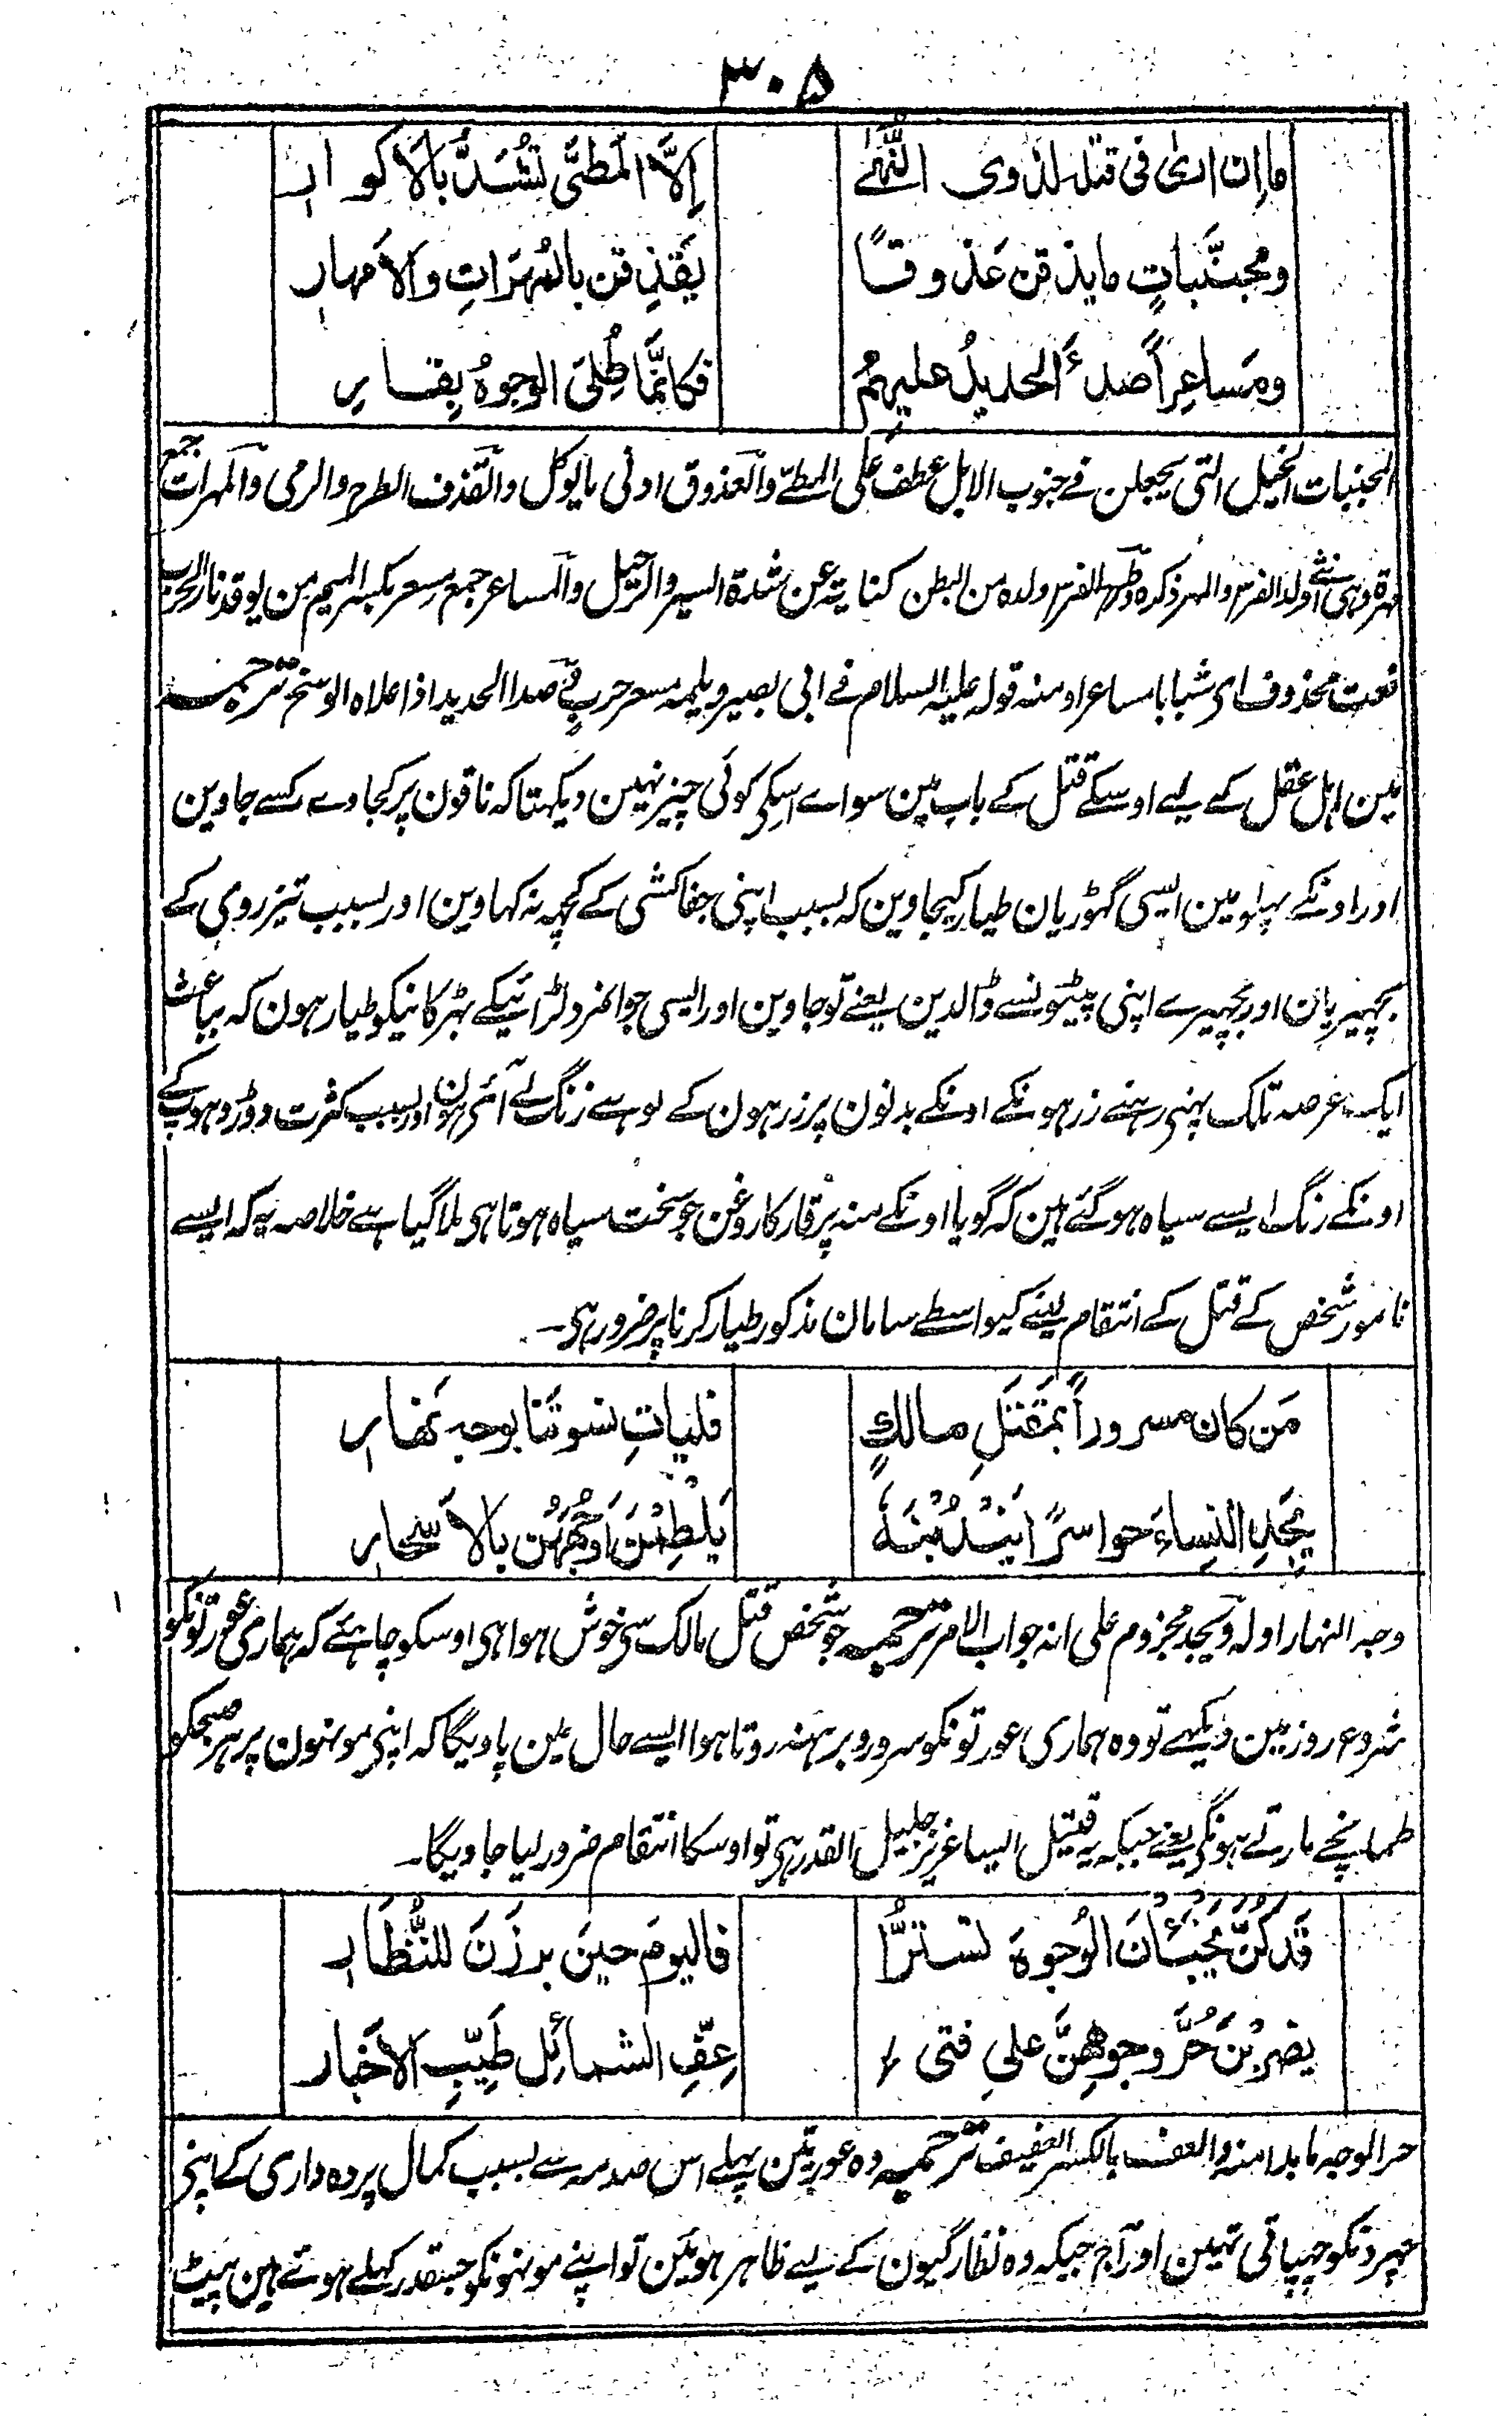 ۳۰۵
ما اِن ارىٰ فى قتله لذوى النُّهىٰ اِلَّا المَطىَّ تُشَدُّ بالاَكوارِ
ومجنَّباتٍ ما يذقن عَذوفًا يَقذِفن بالمُهَرَاتِ والاَمهارِ
ومَساعِراً صدءُ الحديدُ عليهمُ فكانَّما طُلِىَ الوجوهُ بِقارِ
المجنبات الخيل التى يجعلن فے جنوب الابل عطف على المطے والعذوف ادنى ما يوكل والقذف الطرح والرمى والمهرات جمع
مهرة وہى انثے اولد الفرس والمهر ذكره وطرح الفرس ولده من البطن كناية عن شدة السير والرحيل والمساعر جمع مسعر بكسر الميم من يوقد نار الحرب
نعت محذوف اى شبابا مساعرا ومنه قوله عليه السلام فے ابى بصير ويلمه مسعر حرب وصدا الحديد اذا علاه الوسخ ترجمہ
مین اہل عقل کے لیے اوسکے قتل کے باب مین سواے اسکی کوئی چیز نہین دیکہتا کہ ناقون پر کجاوے کسے جاوین
اور اونکے پہلو مین ایسی گہوڑیان طیار کیجاوین کہ بسبب اپنی جفاکشی کے کچہہ نہ کہاوین اور بسبب تیز روی کے
بچہیریان اور بچہیرے اپنی پیٹونسے ڈالدین یعنے توجاوین اور ایسی جوانمرد لڑائیکے بہڑکانیکو طیار ہون کہ بباعث
ایک عرصہ تلک پہنی رہنے زرہونکے اونکے بدنون پر زرہون کے لوہے زنگ لے آئی ہون اور بسبب کثرت دوڑ دہوپ کے
اونکے رنگ ایسے سیاہ ہوگئے ہین کہ گویا اونکے منہ پر قار کا روغن جو سخت سیاہ ہوتا ہی ملا گیا ہے خلاصہ یہ کہ ایسے
نامور شخص کے قتل کے انتقام لینے کیواسطے سامان مذکور طیار کرنا پر ضرور ہی۔
مَن كان مسروراً بمَقتَلِ مالكٍ فليات نسوتَنا بوجہ نَهارِ
يَجِدِ النِساءَ حواسرًا يَندُبنَهٗ يَلطِمنَ اَوجُهَهُنَّ بالاَسحارِ
وجہ النهار اولہ ويجد مجزوم على انہ جواب الامر ترجمہ جو شخص قتل مالک سی خوش ہوا ہی اوسکو چاہئے کہ ہماری عورتونکو
شروع روز مین دیکہے تو وہ ہماری عورتونکو سر و رو برہنہ روتا ہوا ایسے حال مین پاویگا کہ اپنی مونہون پر ہر صبحکو
طمانچے مارتے ہونگی یعنے جبکہ یہ قتیل ایسا عزیز جلیل القدر ہی تو اوسکا انتقام ضرور لیا جاویگا۔
قَد كُنَّ يَخبَأنَ الوُجوهَ تستّرًا فاليومَ حينَ برزَنَ للنُّظّارِ
يضرِبنَ حُرَّ وجوهِهِنَّ على فتى عِفِّ الشمائلِ طَيِّبِ الاَخبارِ
حر الوجہ ما بدا منہ والعف بالكسر العفيف ترجمہ وہ عورتین پہلے اس صدمہ سے بسبب کمال پردہ داری کے اپنی
چہرونکو چہپاتی تہین اور آج جبکہ وہ نظارگیون کے لیے ظاہر ہوئین تو اپنے مونہونکو جسقدر کہلے ہوتے ہین پیٹ